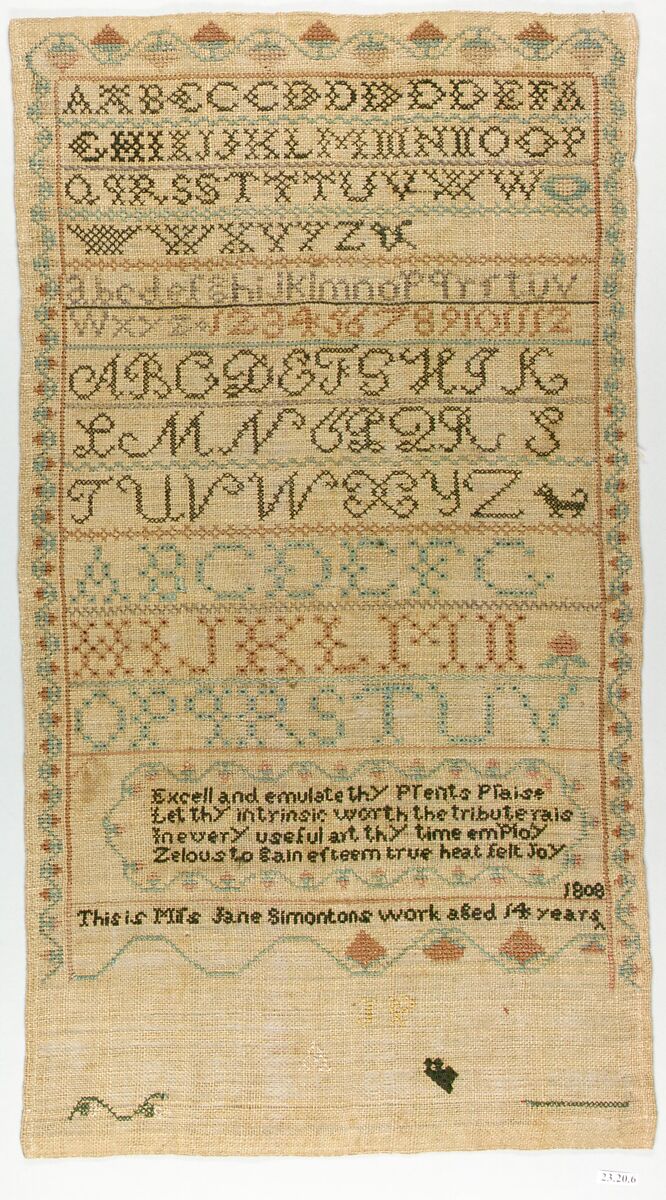 A A B C C C C D D D D D E F A
G H I I J K L M N N O O P
Q P R S S T T T U V X W
W X Y Y Z
a b c d e f g h i j k l m n o p q r r t u v
W x y z 1 2 3 4 5 6 7 8 9 10 11 12
A B C D E F G H I K
L M N O P Q R S
T U V W X Y Z
A B C D E F G
H I J K L M N
O P q R S T U V
Excell and emulate thy Prents Praise
Let thy intrinsic worth the tribute rais
In every useful art thy time employ
Zelous to gain esteem true heat felt Joy
1808
This is Miſs Jane Simontons work aged 14 years
23.20.6